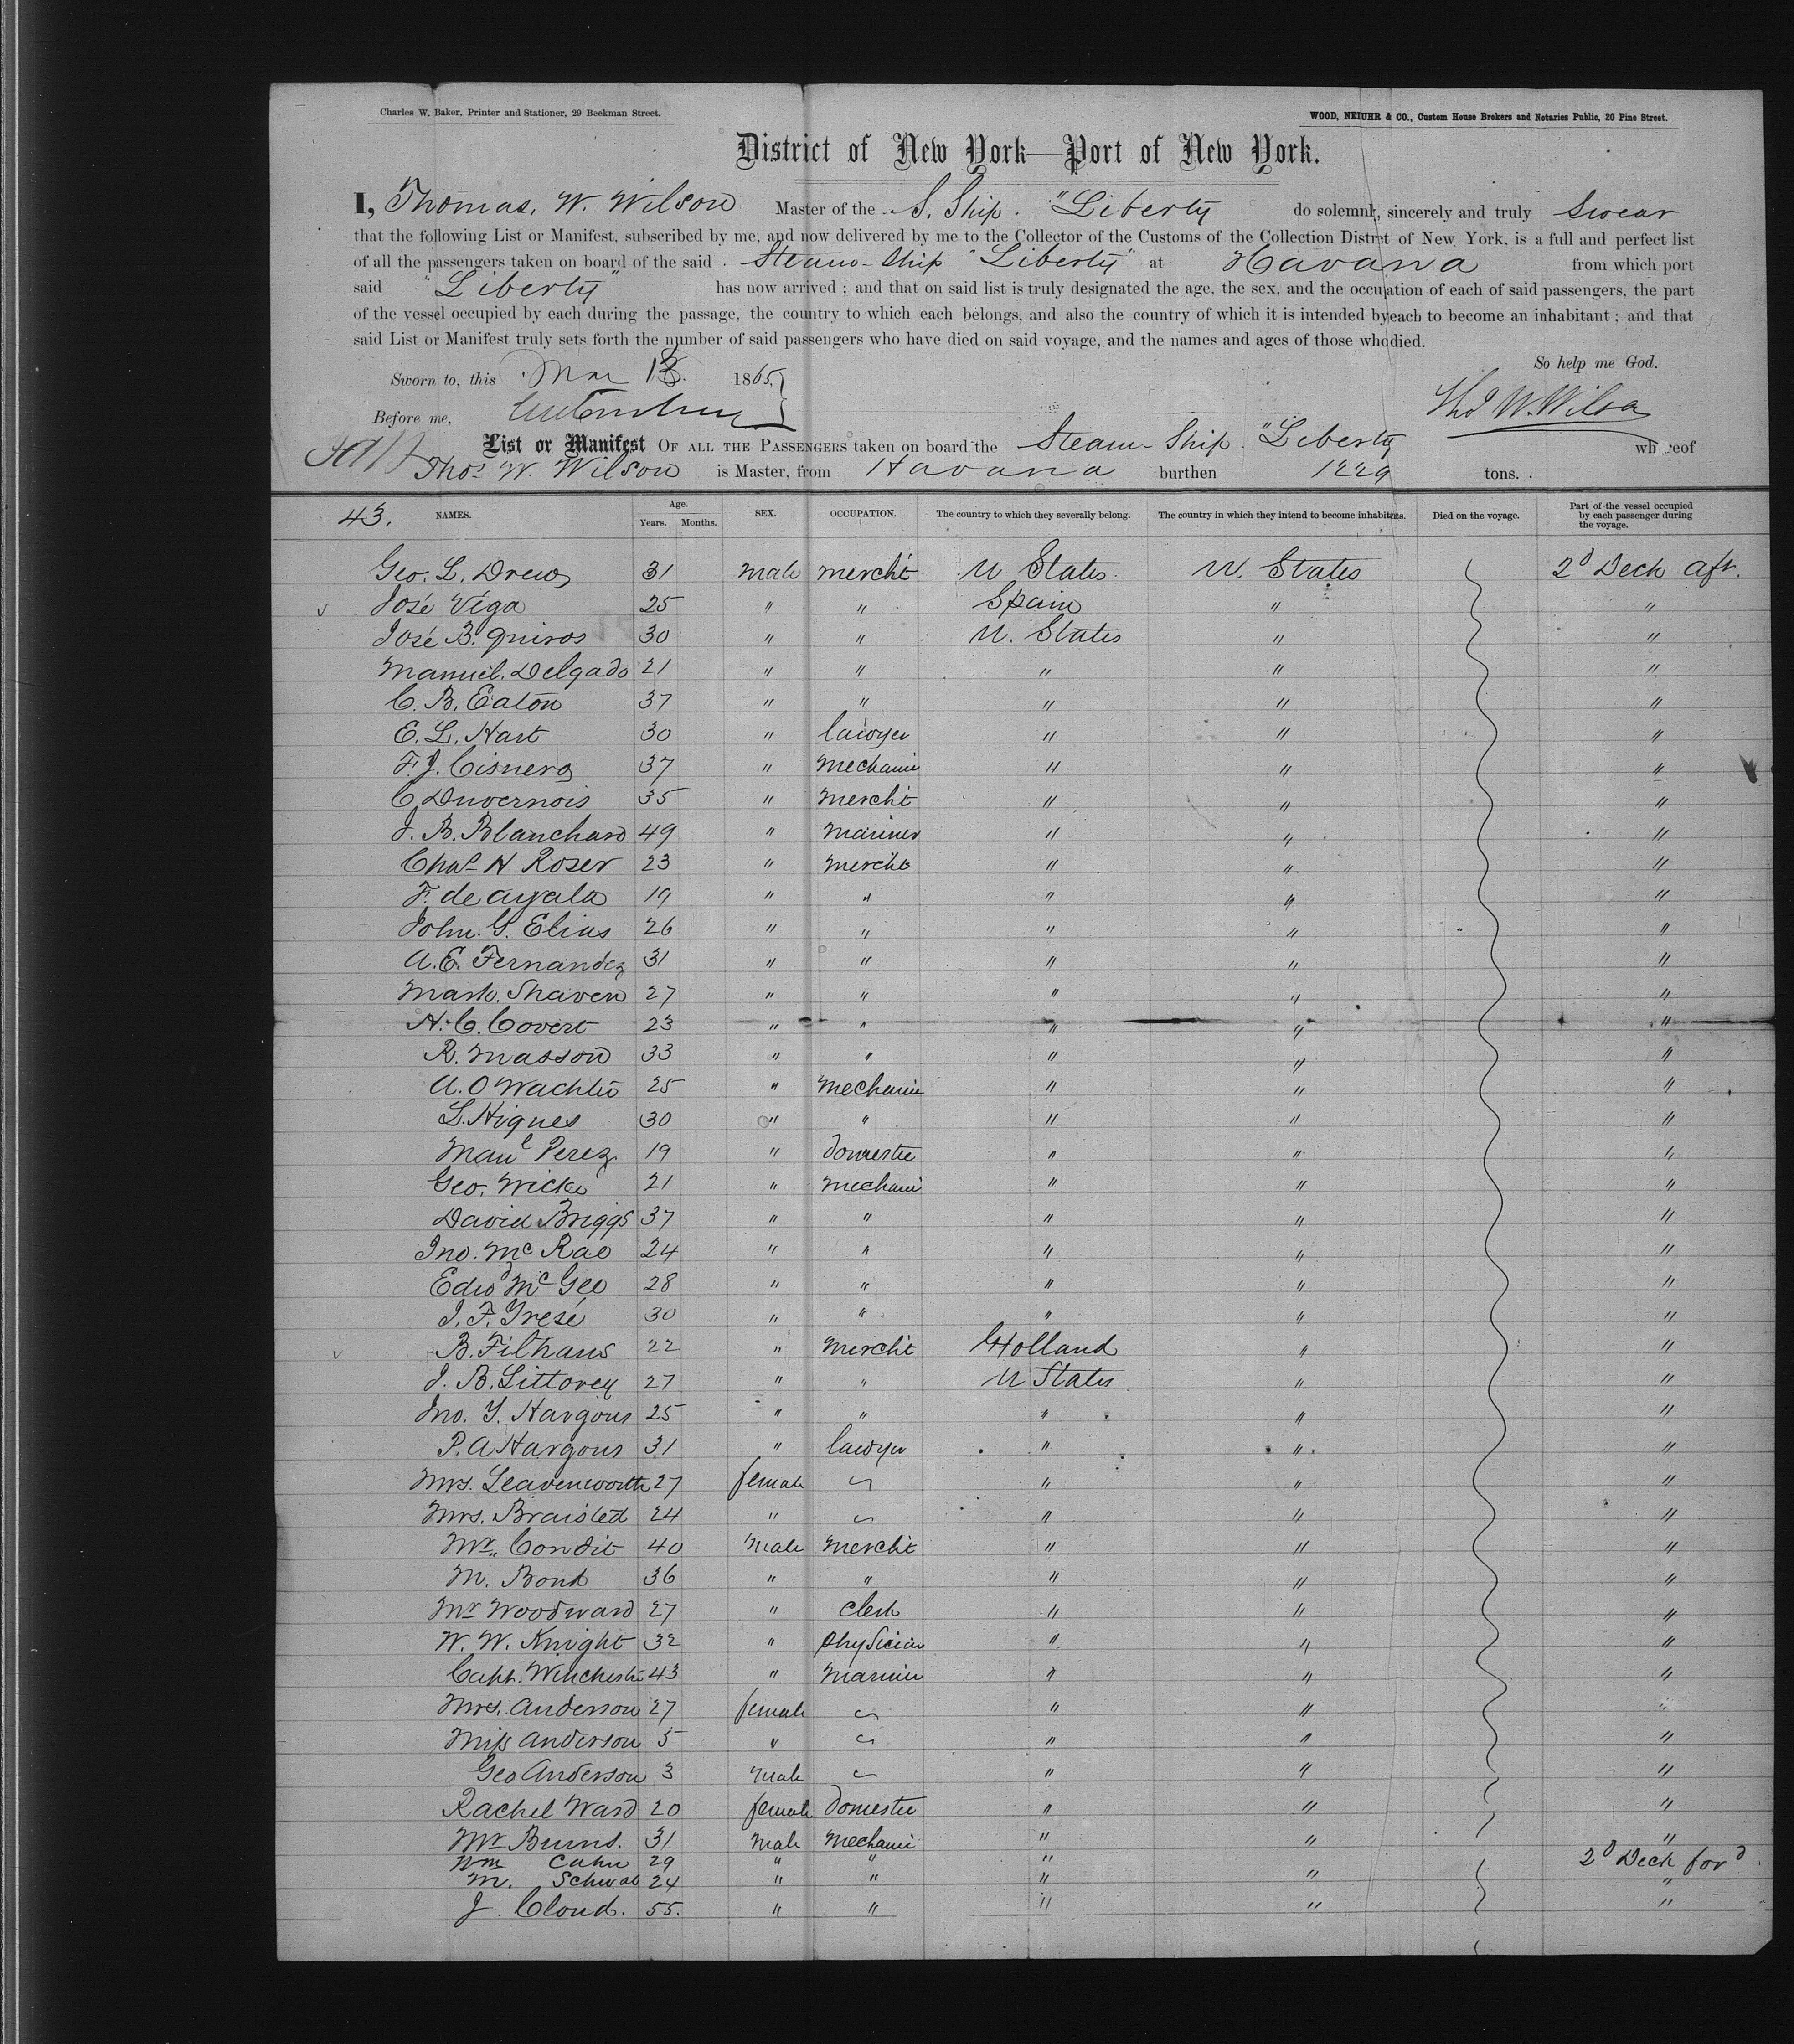 Charles W. Baker, Printer and Stationer, 29 Beekman Street.
WOOD, NEIUHR & CO., Custom House Brokers and Notaries Public, 20 Pine Street.
District of New York—Port of New York.
I, Thomas. W. Wilson Master of the S. Ship. "Liberty do solemnly, sincerely and truly Swear
that the following List or Manifest, subscribed by me, and now delivered by me to the Collector of the Customs of the Collection District of New York, is a full and perfect list
of all the passengers taken on board of the said Steam-Ship "Liberty" at Havana from which port
said "Liberty" has now arrived ; and that on said list is truly designated the age, the sex, and the occupation of each of said passengers, the part
of the vessel occupied by each during the passage, the country to which each belongs, and also the country of which it is intended by each to become an inhabitant ; and that
said List or Manifest truly sets forth the number of said passengers who have died on said voyage, and the names and ages of those who died.
So help me God.
Sworn to, this Mar 18. 1865.
Before me, Tho W. Wilson
List or Manifest OF ALL THE PASSENGERS taken on board the Steam-Ship. "Liberty whereof
Thos. W. Wilson is Master, from Havana burthen 1229 tons.
43. NAMES. Age. Years. Months. SEX. OCCUPATION. The country to which they severally belong. The country in which they intend to become inhabitants. Died on the voyage. Part of the vessel occupied by each passenger during the voyage.
Geo. L. Drews 31 male mercht U States. U. States 2d Deck aft.
José Véga 25 " " Spain " "
José B. Quiros 30 " " U. States " "
Manuel. Delgado 21 " " " " "
C. B. Eaton 37 " " " " "
E. L. Hart 30 " lawyer " " "
F. J. Cisneros 37 " mechanic " " "
C. Duvernois 35 " mercht " " "
J. B. Blanchard 49 " mariner " " "
Chas H Roser 23 " mercht " " "
F. de ayala 19 " " " " "
John. G. Elias 26 " " " " "
A. E. Fernandez 31 " " " " "
Mark. Shaven 27 " " " " "
H. C. Covert 23 " " " " "
R. Masson 33 " " " " "
A. O Wachter 25 " mechanic " " "
L. Hignes 30 " " " " "
Manl Perez 19 " domestic " " "
Geo. Wicke 21 " mechanic " " "
David Briggs 37 " " " " "
Jno. Mc Rae 24 " " " " "
Edwd McGeo 28 " " " " "
J. F. Fresé 30 " " " " "
B. Filhaus 22 " mercht Holland " "
J. B. Littorey 27 " " U States " "
Jno. Y. Hargous 25 " " " " "
P. A Hargous 31 " lawyer " " "
Mrs. Leavenworth 27 female " " "
Mrs. Braisted 24 " " " "
Mr. Condit 40 male mercht " " "
M. Bonk 36 " " " " "
Mr Woodward 27 " clerk " " "
W. W. Knight 32 " physician " " "
Capt. Winchester 43 " mariner " " "
Mrs. Anderson 27 female " " "
Miss Anderson 5 " " " "
Geo Anderson 3 male " " "
Rachel Ward 20 female domestic " " "
Mr Burns. 31 male mechanic " " "
Wm Cahn 29 " " " 2d Deck ford
M. Schwab 24 " " " " "
J Cloud. 55. " " " " "